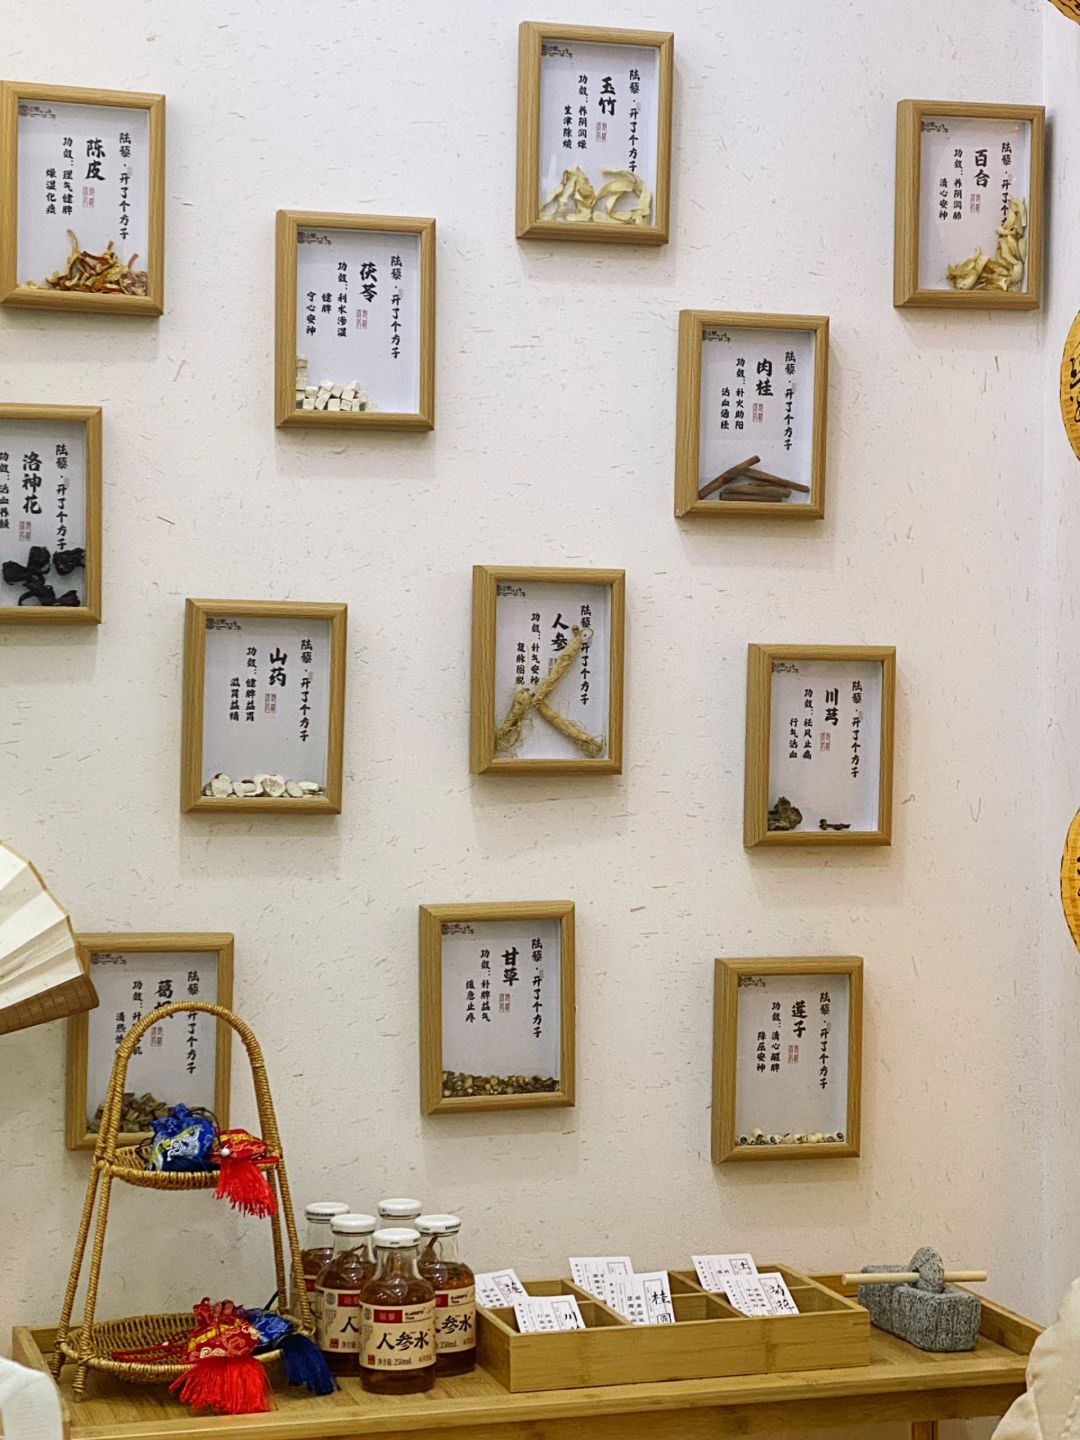 陆藜·开了个方子
陈皮
功效：理气健脾
燥湿化痰
陆藜·开了个方子
茯苓
功效：利水渗湿
健脾
宁心安神
陆藜·开了个方子
玉竹
功效：养阴润燥
生津除烦
陆藜·开了个方子
百合
功效：养阴润肺
清心安神
陆藜·开了个方子
肉桂
功效：补火助阳
活血通经
陆藜·开了个方子
洛神花
功效：活血养颜
陆藜·开了个方子
山药
功效：健脾益胃
滋肾益精
陆藜·开了个方子
人参
功效：补气安神
复脉固脱
陆藜·开了个方子
川芎
功效：祛风止痛
行气活血
陆藜·开了个方子
葛根
功效：
陆藜·开了个方子
甘草
功效：补脾益气
缓急止疼
陆藜·开了个方子
莲子
功效：清心醒脾
降压安神
人参水
净含量：250mL
人参水
川
桂
菊花